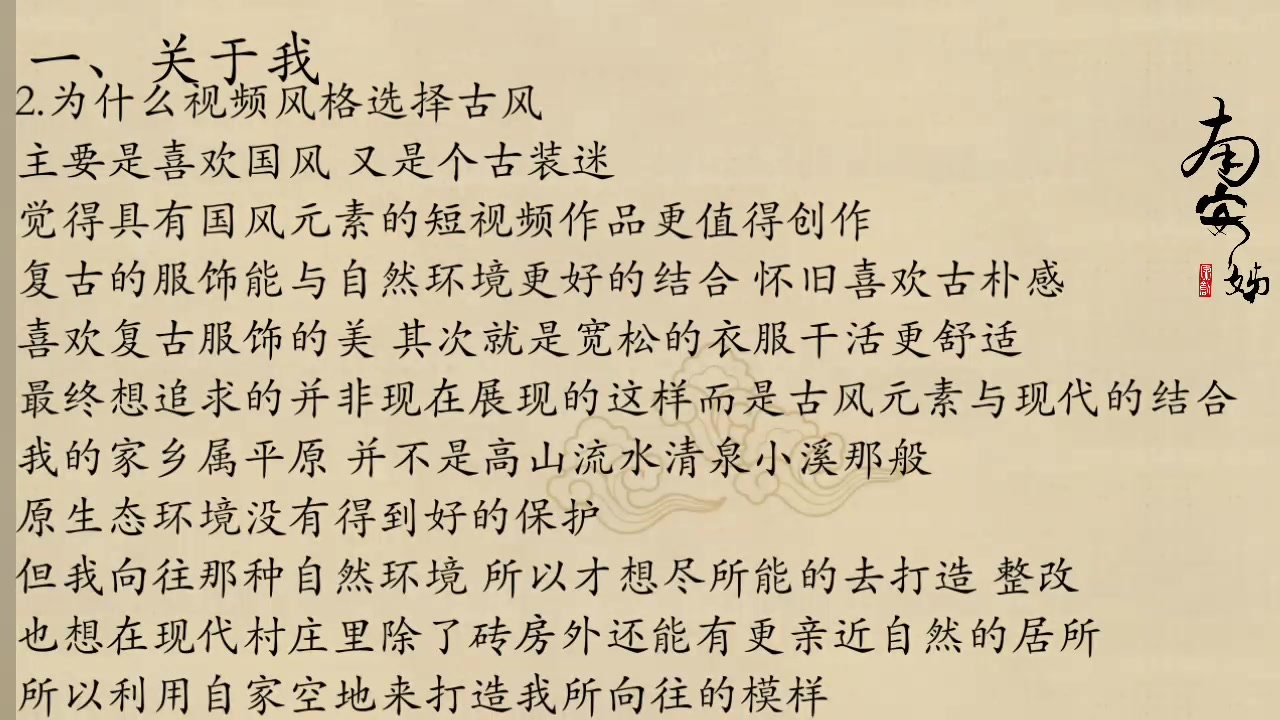 一、关于我
2.为什么视频风格选择古风
主要是喜欢国风 又是个古装迷
觉得具有国风元素的短视频作品更值得创作
复古的服饰能与自然环境更好的结合 怀旧喜欢古朴感
喜欢复古服饰的美 其次就是宽松的衣服干活更舒适
最终想追求的并非现在展现的这样而是古风元素与现代的结合
我的家乡属平原 并不是高山流水清泉小溪那般
原生态环境没有得到好的保护
但我向往那种自然环境 所以才想尽所能的去打造 整改
也想在现代村庄里除了砖房外还能有更亲近自然的居所
所以利用自家空地来打造我所向往的模样
南安姊